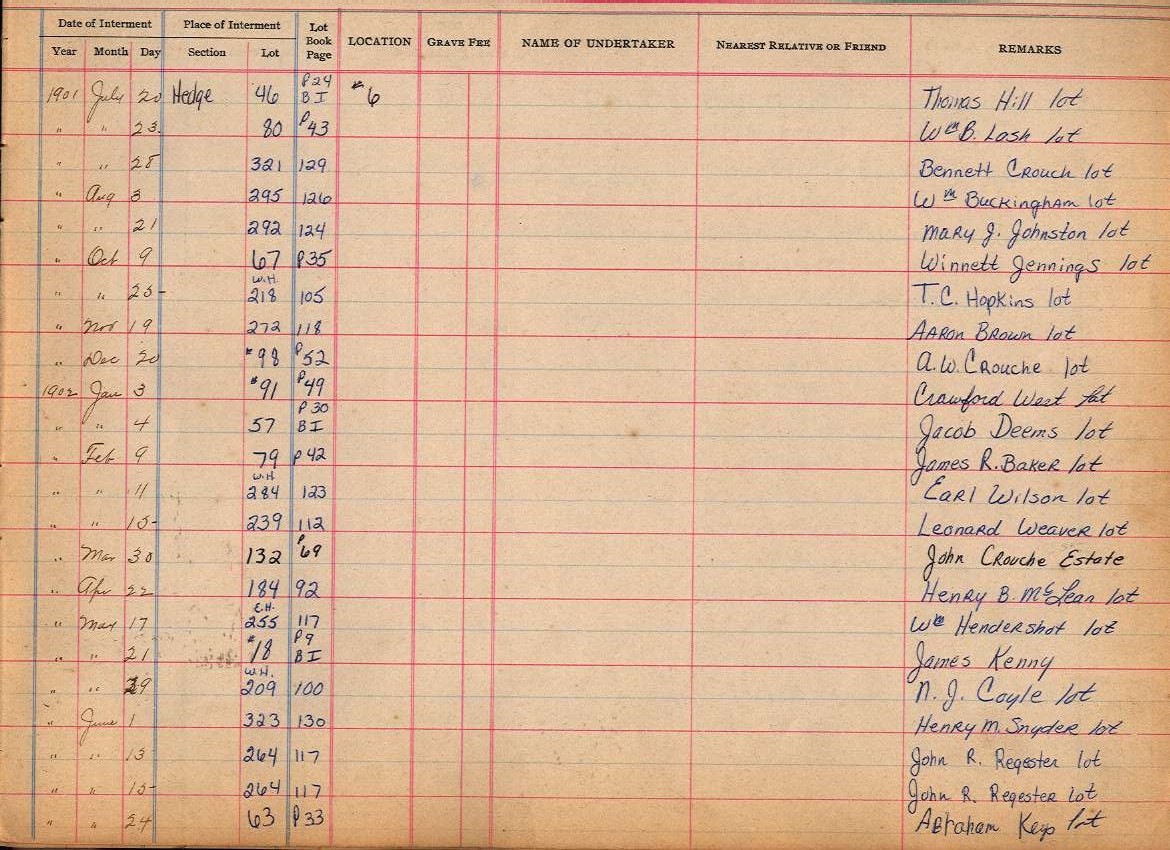 Date of Interment Place of Interment Lot Book Page LOCATION GRAVE FEE NAME OF UNDERTAKER NEAREST RELATIVE OR FRIEND REMARKS
Year Month Day Section Lot
1901 July 20 Hedge 46 P24 B I #6 Thomas Hill lot
" " 23. 80 P43 Wm B. Lash lot
" " 28 321 129 Bennett Crouch lot
" Aug 3 295 126 Wm Buckingham lot
" " 21 292 124 Mary J. Johnston lot
" Oct 9 67 P35 Winnett Jennings lot
" " 25- W.H. 218 105 T.C. Hopkins lot
" Nov 19 272 118 Aaron Brown lot
" Dec 20 #98 P52 A.W. Crouche lot
1902 Jan 3 #91 P49 Crawford West lot
" " 4 57 P30 B I Jacob Deems lot
" Feb 9 79 P42 James R. Baker lot
" " 11 W.H. 284 123 Earl Wilson lot
" " 15- 239 112 Leonard Weaver lot
" Mar 30 132 P69 John Crouche Estate
" Apr 22 184 92 Henry B. McLean lot
" May 17 E.H. 255 117 Wm Hendershot lot
" " 21 #18 P9 B I James Kenny
" " 29 W.H. 209 100 N. J. Coyle lot
" June 1 323 130 Henry M. Snyder lot
" " 13 264 117 John R. Regester lot
" " 15- 264 117 John R. Regester lot
" " 24 63 P33 Abraham Keys lot